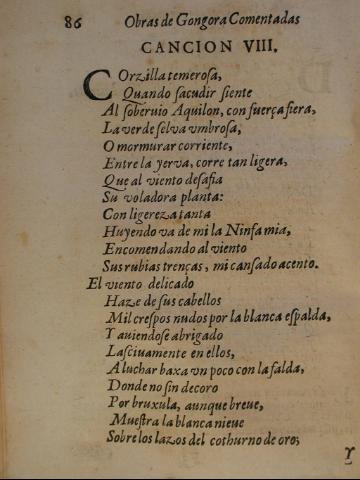 86 Obras de Gongora Comentadas
CANCION VIII.
COrzilla temerosa,
Quando sacudir siente
Al soberuio Aquilon, con fuerça fiera,
La verde selva vmbrosa,
O mormurar corriente,
Entre la yerva, corre tan ligera,
Que al viento desafia
Su voladora planta:
Con ligereza tanta
Huyendo va de mi la Ninfa mia,
Encomendando al viento
Sus rubias trenças, mi cansado acento.
El viento delicado
Haze de sus cabellos
Mil crespos nudos por la blanca espalda,
Y auiendose abrigado
Lasciuamente en ellos,
A luchar baxa vn poco con la falda,
Donde no sin decoro
Por bruxula, aunque breue,
Muestra la blanca nieue
Sobre los lazos del cothurno de oro;
Y